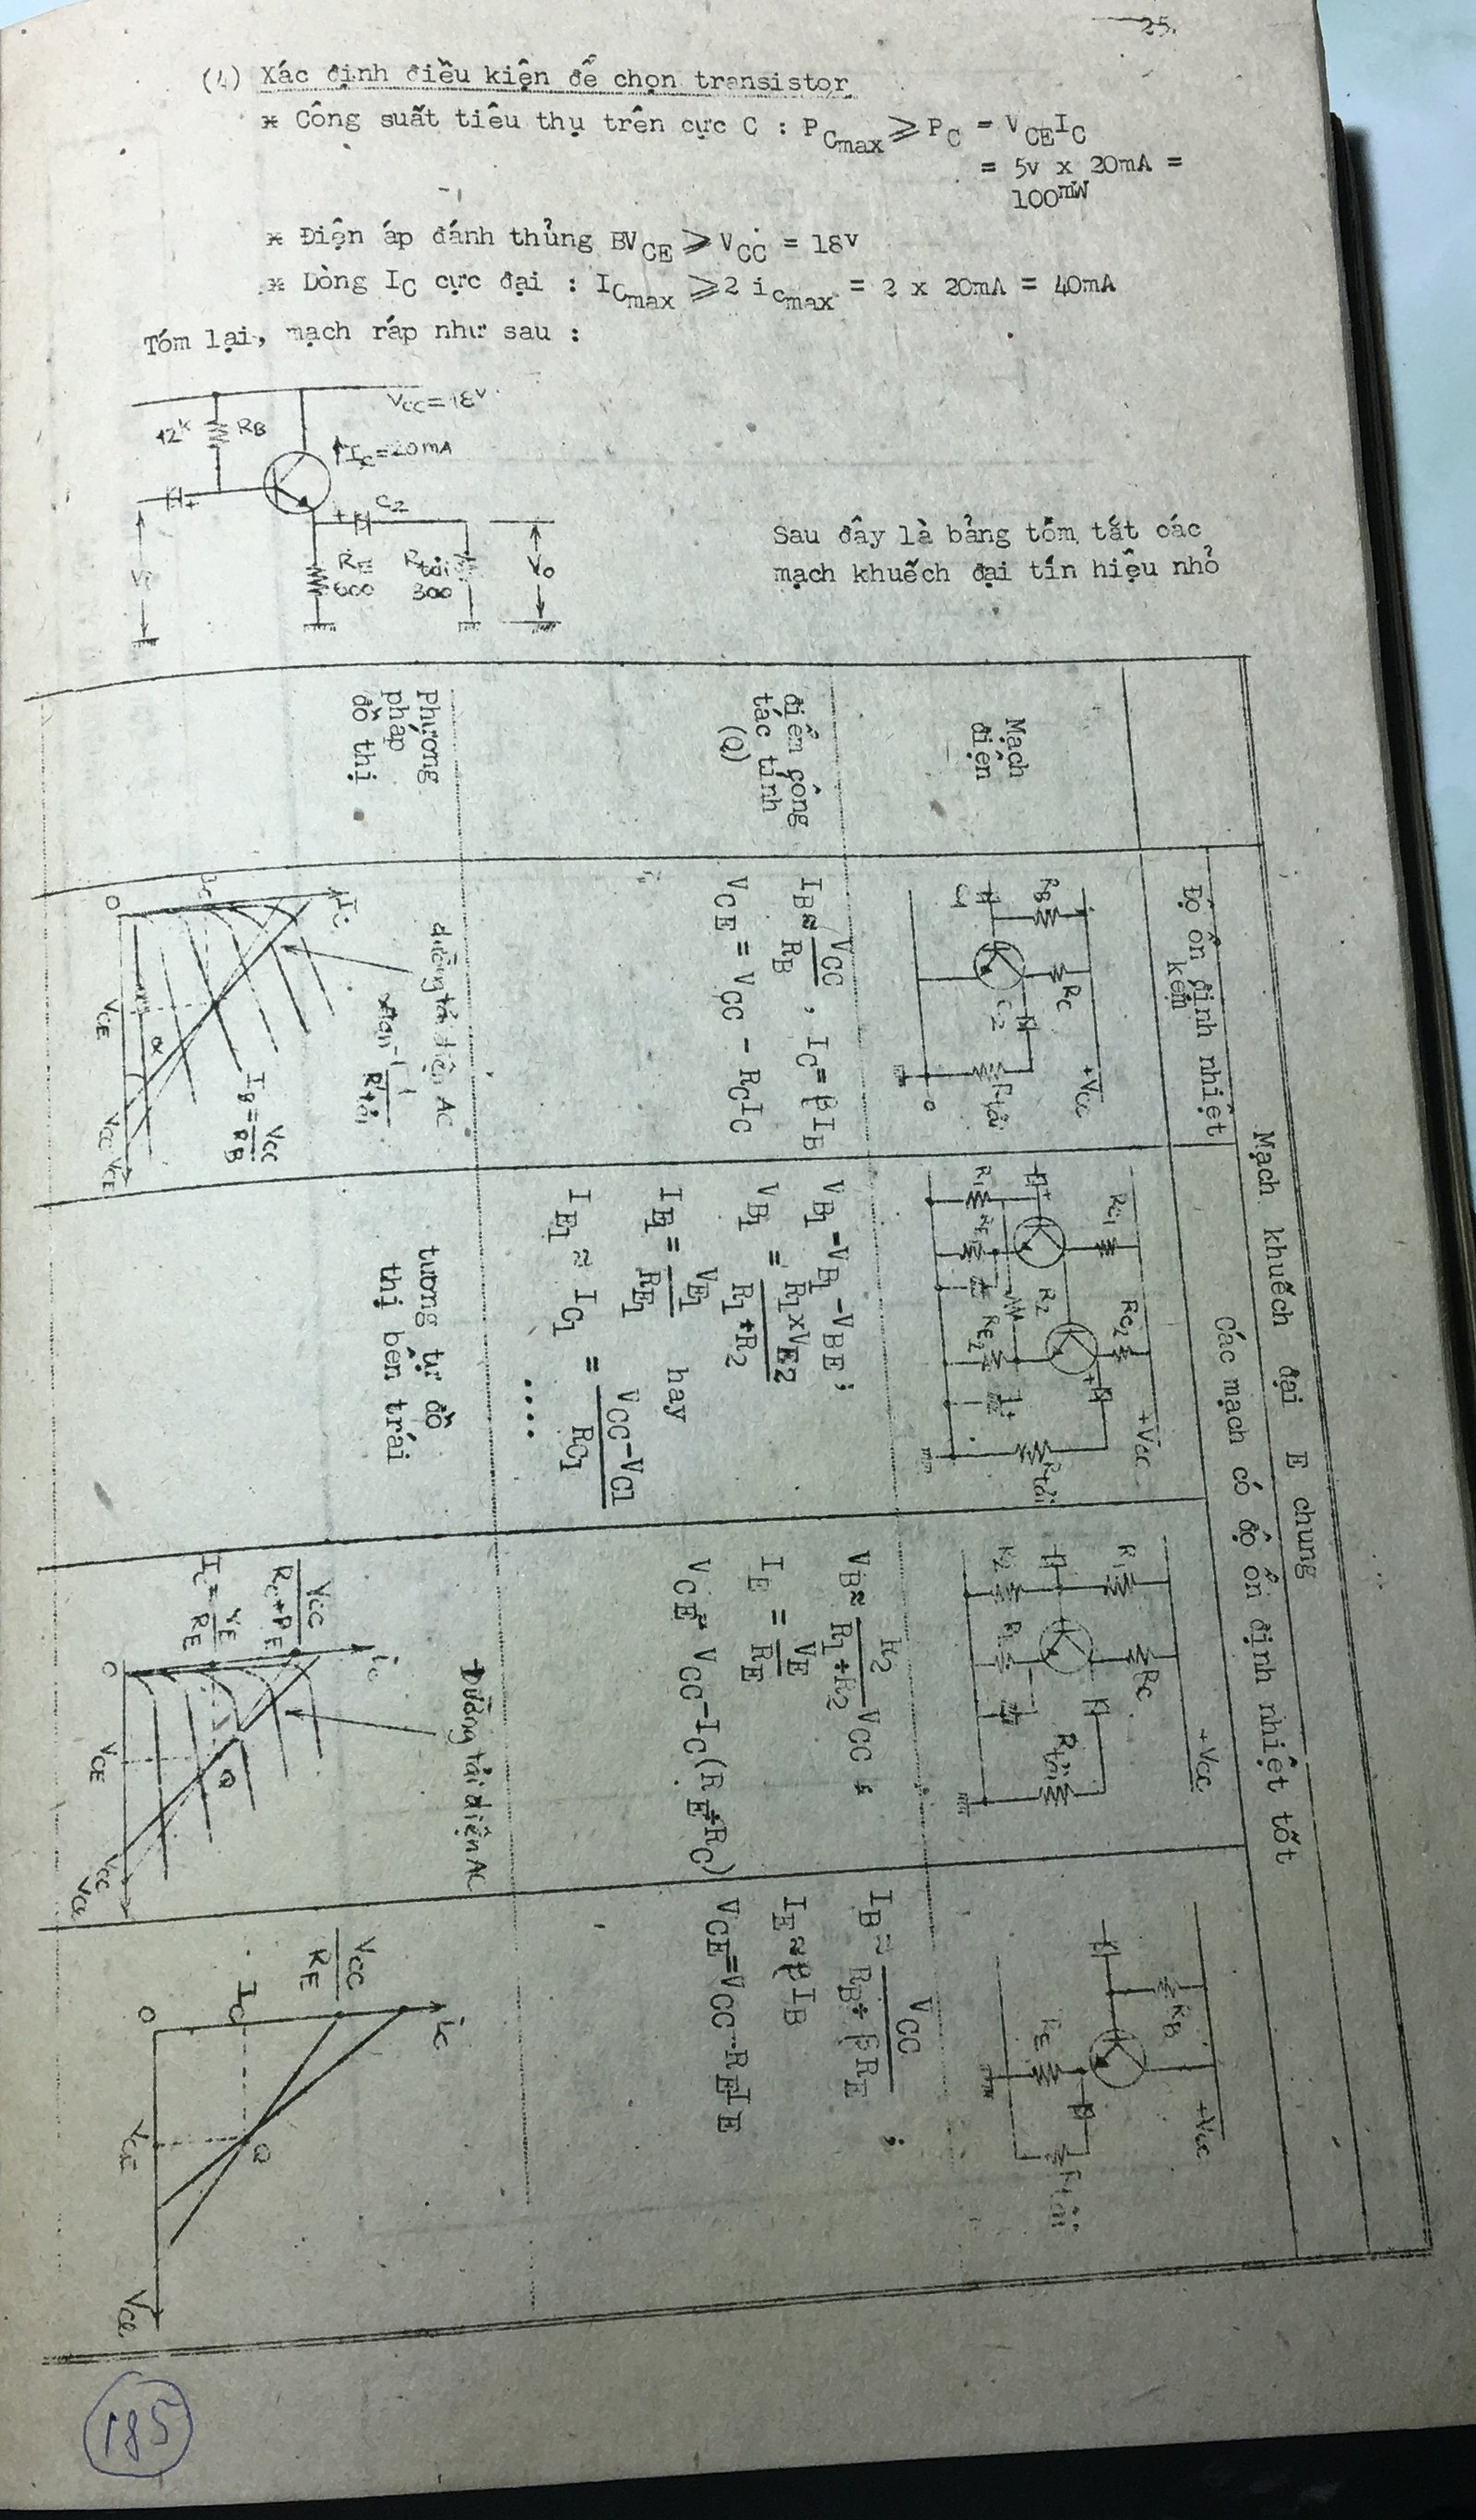 25.
(4) Xác định điều kiện để chọn transistor
* Công suất tiêu thụ trên cực C : P_Cmax ⩾ P_C = V_CE I_C
= 5v x 20mA =
100mW
* Điện áp đánh thủng BV_CE ⩾ V_CC = 18v
* Dòng I_C cực đại : I_Cmax ⩾ 2 i_cmax = 2 x 20mA = 40mA
Tóm lại, mạch ráp như sau :
V_CC = 18V
12K R_B
I_C = 20mA
+ C2
R_E R_tải
600 300
V_o
Sau đây là bảng tóm tắt các
mạch khuếch đại tín hiệu nhỏ
Mạch khuếch đại E chung
Độ ổn định nhiệt
kém
Các mạch có độ ổn định nhiệt tốt
Mạch
điện
R_B R_C +V_CC
C1 C2 R_tải
0
R_C1 R_C2 +V_CC
R1 R2 R_E2 R_tải
R1 R_C +V_CC
R2 R_tải
R_B +V_CC
R_E R_tải
điểm công
tác tĩnh
(Q)
I_B ≈ V_CC / R_B , I_C = βI_B
V_CE = V_CC - R_C I_C
V_B1 - V_E1 - V_BE ;
V_B1 = R1 x V_E2 / R1 + R2
I_E1 = V_E1 / R_E1 hay
I_E1 ≈ I_C1 = V_CC - V_C1 / R_C1
....
V_B ≈ R2 / R1 + R2 V_CC ;
I_E = V_E / R_E
V_CE ≈ V_CC - I_C (R_E + R_C)
I_B ≈ V_CC / R_B + βR_E ;
I_E ≈ βI_B
V_CE = V_CC - R_E I_E
Phương
pháp
đồ thị
đường tải điện AC
tan⁻¹ 1 / R_tải
I_C
I_B = V_CC / R_B
α
0 V_CE V_CC V_CE
tương tự đồ
thị bên trái
Đường tải điện AC
i_c
V_CC / R_C + R_E
I_C = V_E / R_E
Q
0 V_CE V_CC V_CE
i_c
V_CC / R_E
I_C Q
0 V_CE V_CE
185